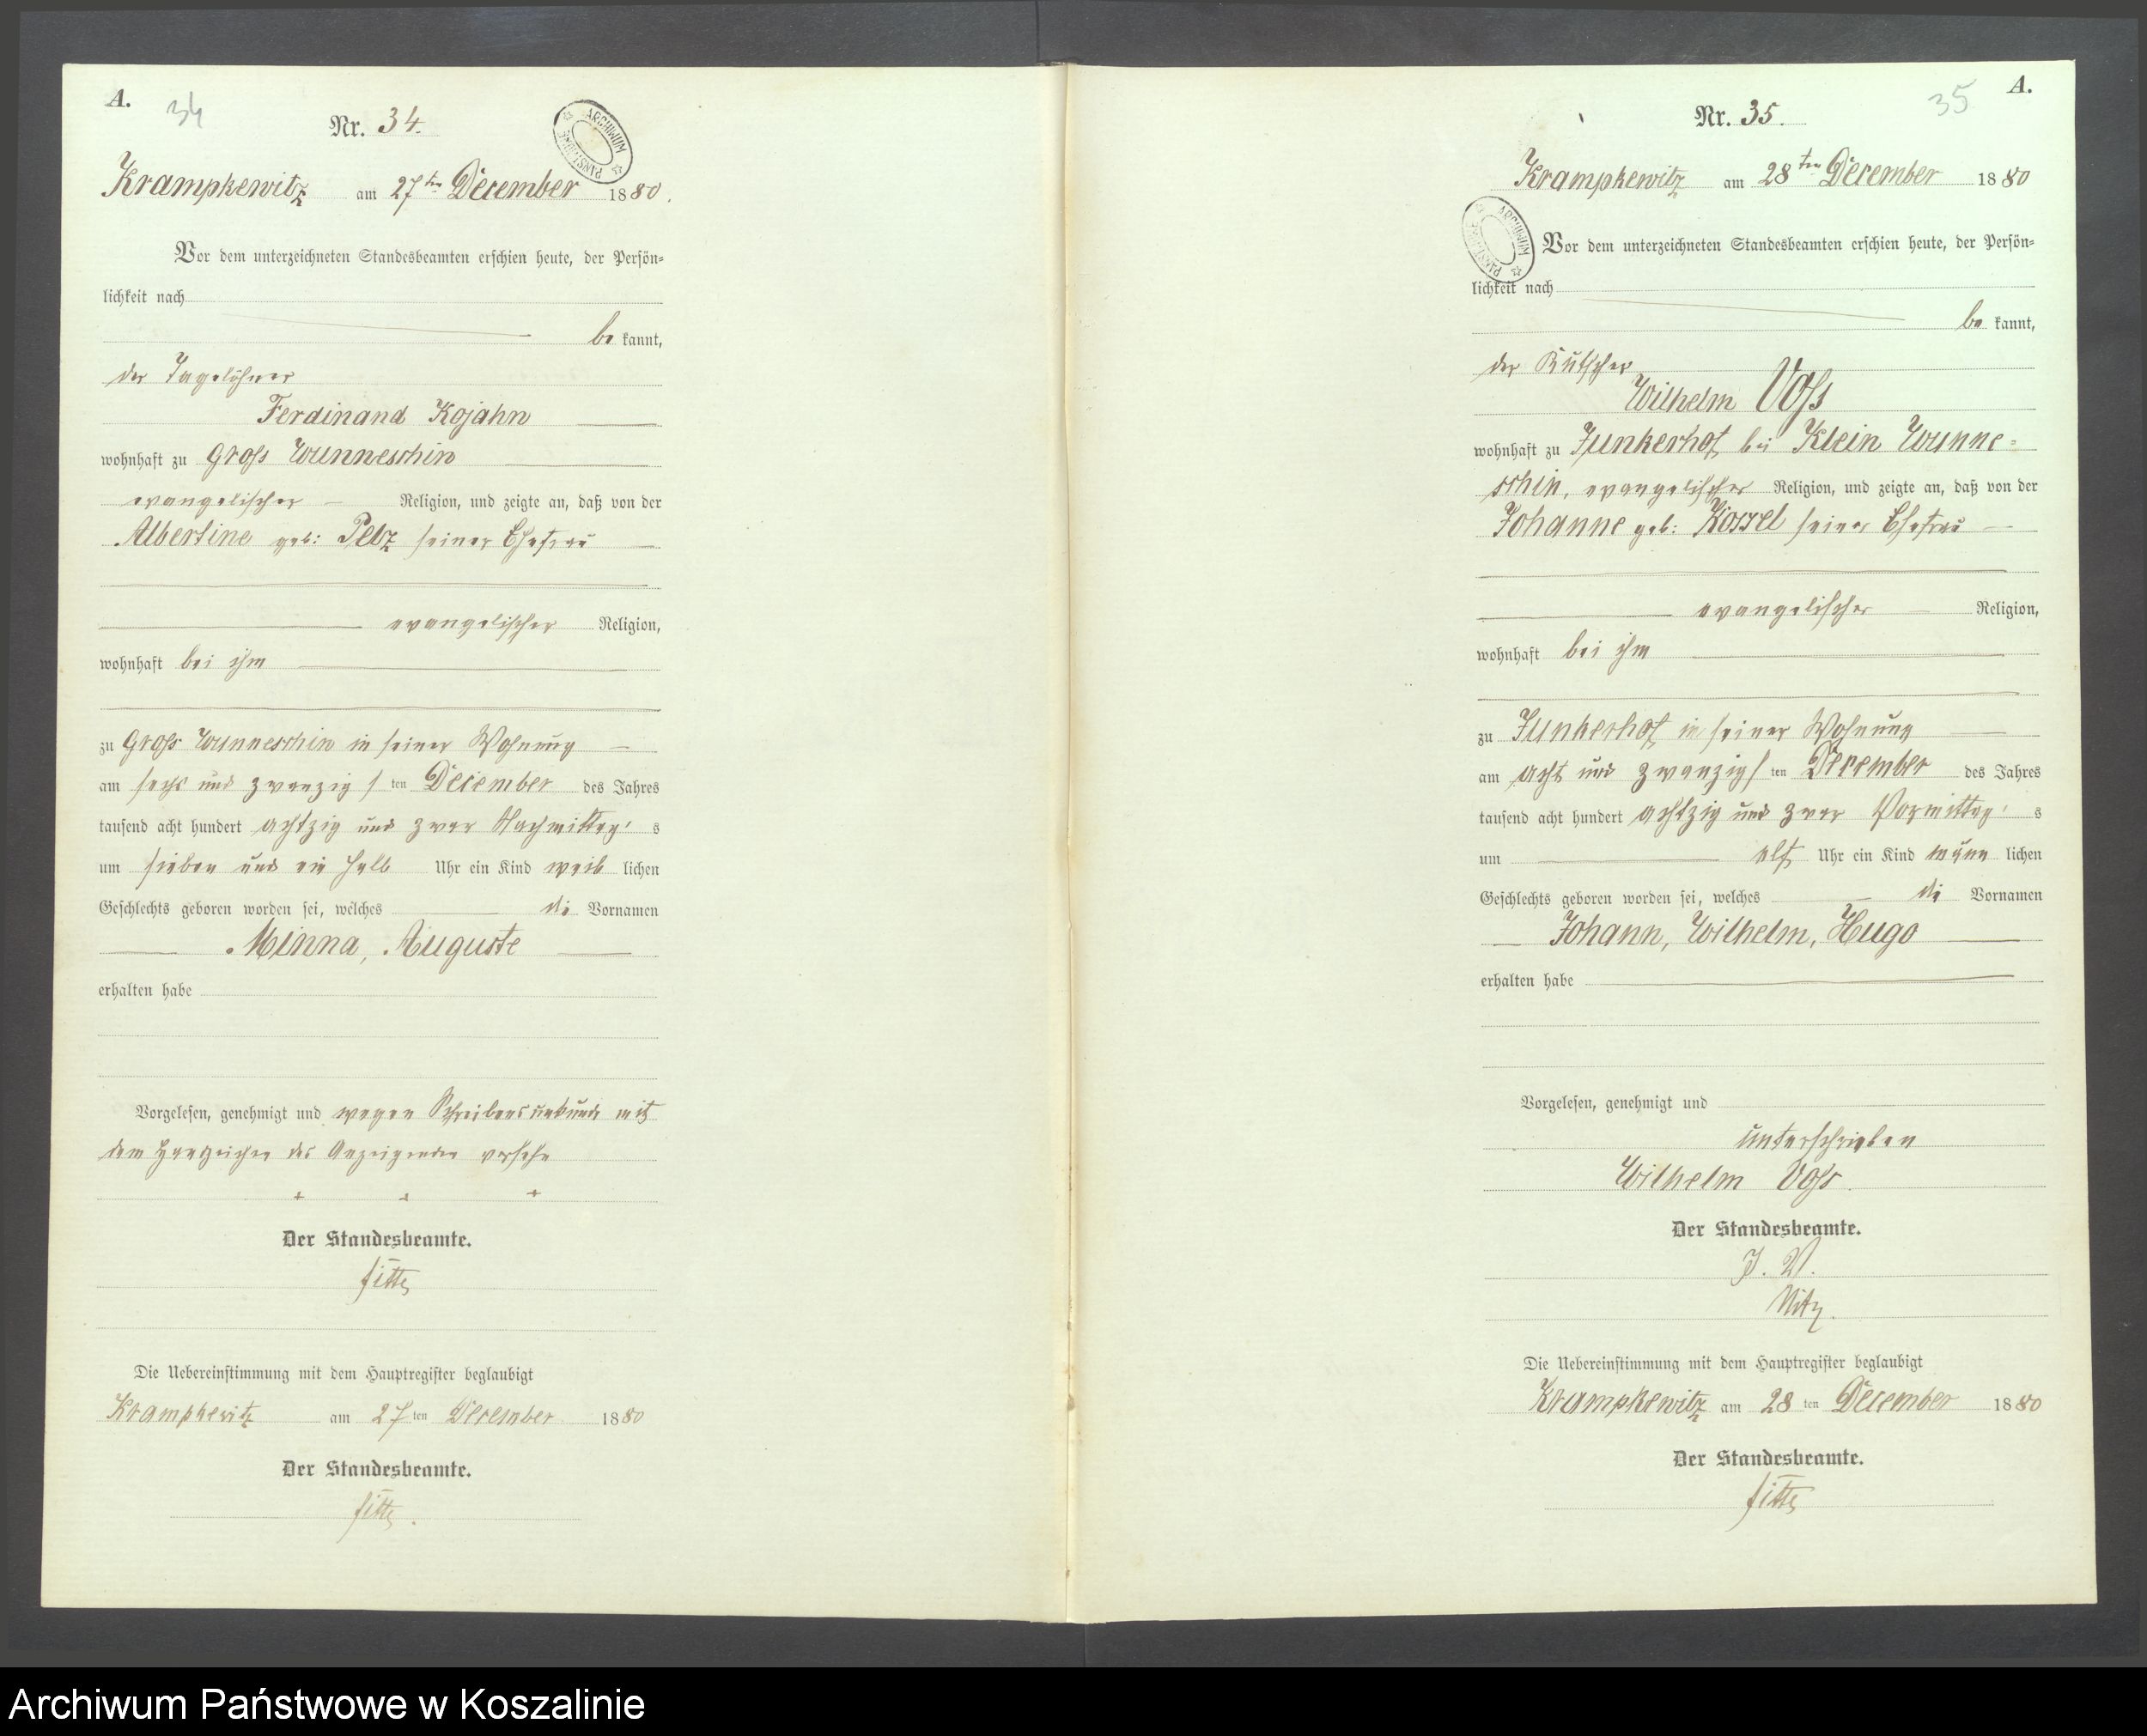 A.
34
Nr. 34.
ARCHIWUM PAŃSTWOWE
Krampkewitz am 27ten December 1880.
Vor dem unterzeichneten Standesbeamten erschien heute, der Persön-
lichkeit nach
be kannt,
der Tagelöhner
Ferdinand Kojahn
wohnhaft zu Gross Wunneschin
evangelischer Religion, und zeigte an, daß von der
Albertine geb: Pelz seiner Ehefrau
evangelischer Religion,
wohnhaft bei ihm
zu Gross Wunneschin in seiner Wohnung
am sechs und zwanzigsten December des Jahres
tausend acht hundert achtzig und zwar Nachmittags
um sieben und ein halb Uhr ein Kind weib lichen
Geschlechts geboren worden sei, welches die Vornamen
Minna, Auguste
erhalten habe
Vorgelesen, genehmigt und wegen Schreibensunkunde mit
dem Handzeichen des Anzeigenden versehen
+ + +
Der Standesbeamte.
Die Uebereinstimmung mit dem Hauptregister beglaubigt
Krampkewitz am 27ten December 1880
Der Standesbeamte.
A.
35
Nr. 35.
Krampkewitz am 28ten December 1880
ARCHIWUM PAŃSTWOWE
Vor dem unterzeichneten Standesbeamten erschien heute, der Persön-
lichkeit nach
be kannt,
der Kutscher
Wilhelm Voss
wohnhaft zu Junkerhof bei Klein Wunne-
schin, evangelischer Religion, und zeigte an, daß von der
Johanne geb: Kossel seiner Ehefrau
evangelischer Religion,
wohnhaft bei ihm
zu Junkerhof in seiner Wohnung
am acht und zwanzigsten December des Jahres
tausend acht hundert achtzig und zwar Vormittags
um elf Uhr ein Kind männ lichen
Geschlechts geboren worden sei, welches die Vornamen
Johann, Wilhelm, Hugo
erhalten habe
Vorgelesen, genehmigt und
unterschrieben
Wilhelm Voss.
Der Standesbeamte.
J. V.
Die Uebereinstimmung mit dem Hauptregister beglaubigt
Krampkewitz am 28ten December 1880
Der Standesbeamte.
Archiwum Państwowe w Koszalinie